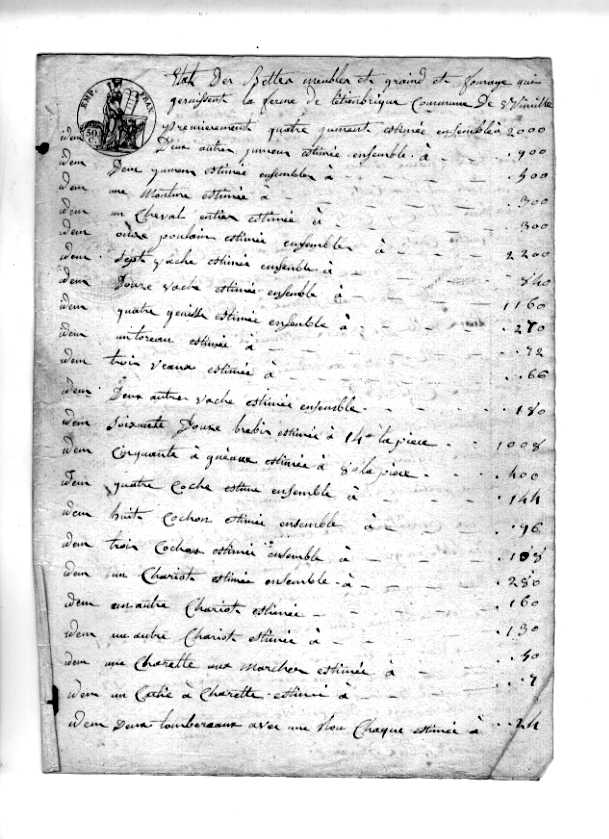 EMP. FRAN.
50 C.
Etat Des Bettes meubles et graind et fourage qui
garnissent la ferme de Commune De
premierement quatre jument estimée ensemble à 2000
idem Deux autres jument estimée ensemble à 900
idem Deux jument estimée ensemble à 500
idem une Monture estimée à 300
idem un Cheval entier estimée à 300
idem onze poulain estimée ensemble à 2200
idem Sept vache estimée ensemble à 840
idem Douze vache estimée ensemble à 1160
idem quatre genisse estimée ensemble à 270
idem un toreau estimée à 72
idem trois veaux estimée à 66
idem Deux autres vache estimée ensemble 180
idem soixante Douze brebis estimée à 14 la piece 1008
idem Cinquante à gneaux estimée à 8 la piece 400
idem quatre Coche estimé ensemble à 144
idem huit Cochon estimée ensemble à 96
idem trois Cochon estimée ensemble à 108
idem un Chariot estimée ensemble à 280
idem un autre Chariot estimée 160
idem un autre Chariot estimée à 130
idem une Charette aux Marchon estimée à 50
idem un à Charette estimée à 7
idem Deux tombereaux avec une Roue Chaque estimée à 24